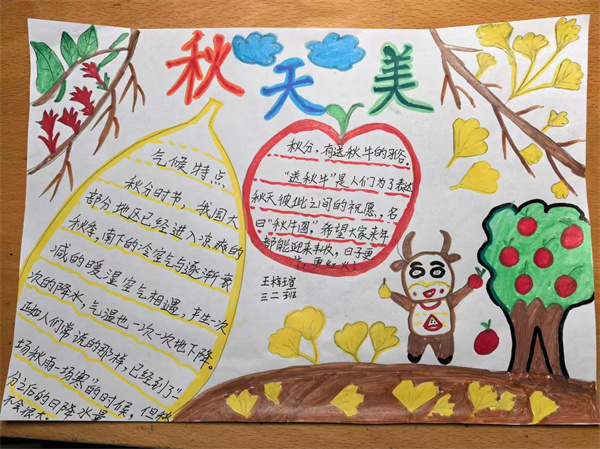 秋天美
气候特点
秋分时节，我国大
部分地区已经进入凉爽的
秋季，南下的冷空气与逐渐衰
减的暖湿空气相遇，产生一次
次的降水，气温也一次一次地下降。
正如人们常说的那样，已经到了"一
场秋雨一场寒"的时候，但秋
分之后的日降水量
不会很大。
秋分，有送秋牛的习俗。
"送秋牛"是人们为了表达
秋天彼此之间的祝愿，名
曰"秋牛图"，希望大家来年
都能迎来丰收，日子更
三二班